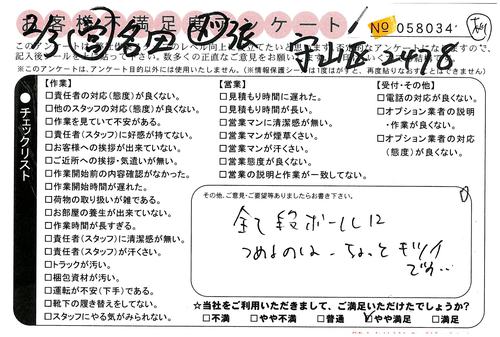 お客様不満足度アンケート
No 058034
2/3 営 名田
張
守山区 2478
※このアンケートは、アンケート目的以外には使用いたしません。(※情報保護シールは1度はがすと、再度貼りなおすことはできません)
チェックリスト
【作業】
□責任者の対応(態度)が良くない。
□他のスタッフの対応(態度)が良くない。
□作業を見ていて不安がある。
□責任者(スタッフ)に好感が持てない。
□お客様への挨拶が出来ていない。
□ご近所への挨拶・気遣いが無い。
□作業開始前の内容確認がなかった。
□作業開始時間が遅れた。
□荷物の取り扱いが雑である。
□お部屋の養生が出来ていない。
□作業時間が長すぎる。
□責任者(スタッフ)に清潔感が無い。
□責任者(スタッフ)が汗くさい。
□トラックが汚い。
□梱包資材が汚い。
□運転が不安(下手)である。
□靴下の履き替えをしてない。
□スタッフにやる気がみられない。
【営業】
□見積もり時間に遅れた。
□見積もり時間が長い。
□営業マンに清潔感が無い。
□営業マンが煙草くさい。
□営業マンが汗くさい。
□営業態度が良くない。
□営業の説明と作業が一致してない。
【受付・その他】
□電話の対応が良くない。
□オプション業者の説明
・作業が良くない。
□オプション業者の対応
(態度)が良くない。
その他、ご意見・ご要望等ありましたらお書き下さい。
全て段ボールに
つめるのは、ちょっとキツイ
です…
☆当社をご利用いただきまして、ご満足いただけたでしょうか?
□不満 □やや不満 □普通 ☑やや満足 □満足